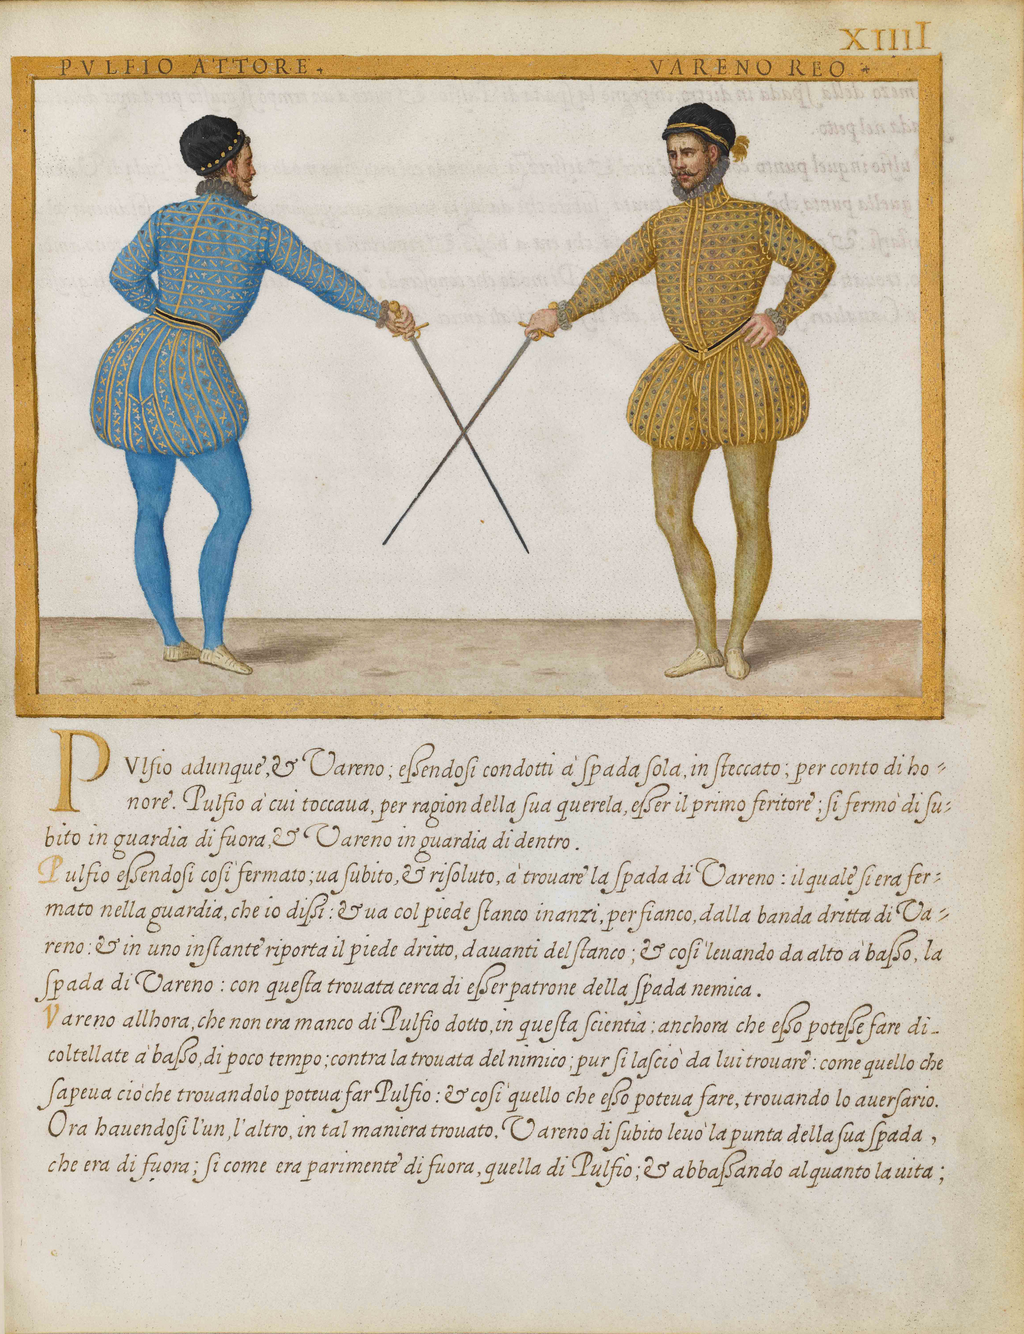 XIIII
PVLFIO ATTORE.
VARENO REO
PVlfio adunque, & Vareno; essendosi condotti à spada sola, in steccato; per conto di ho-
nore. Pulfio à cui toccaua, per ragion della sua querela, esser il primo feritore; si fermò di su-
bito in guardia di fuora, & Vareno in guardia di dentro.
Pulfio essendosi così fermato; ua subito, & risoluto, à trouare la spada di Vareno: il quale si era fer-
mato nella guardia, che io dissi: & ua col piede stanco inanzi, per fianco, dalla banda dritta di Va-
reno: & in uno instante riporta il piede dritto, dauanti del stanco; & così leuando da alto à basso, la
spada di Vareno: con questa trouata cerca di esser patrone della spada nemica.
Vareno allhora, che non era manco di Pulfio dotto, in questa scientia: anchora che esso potesse fare di-
coltellate à basso, di poco tempo; contra la trouata del nimico; pur si lasciò da lui trouare: come quello che
sapeua ciò che trouandolo poteua far Pulfio: & così quello che esso poteua fare, trouando lo auersario.
Ora hauendosi l'un, l'altro, in tal maniera trouato, Vareno di subito leuò la punta della sua spada,
che era di fuora; si come era parimente di fuora, quella di Pulfio; & abbassando alquanto la uita;